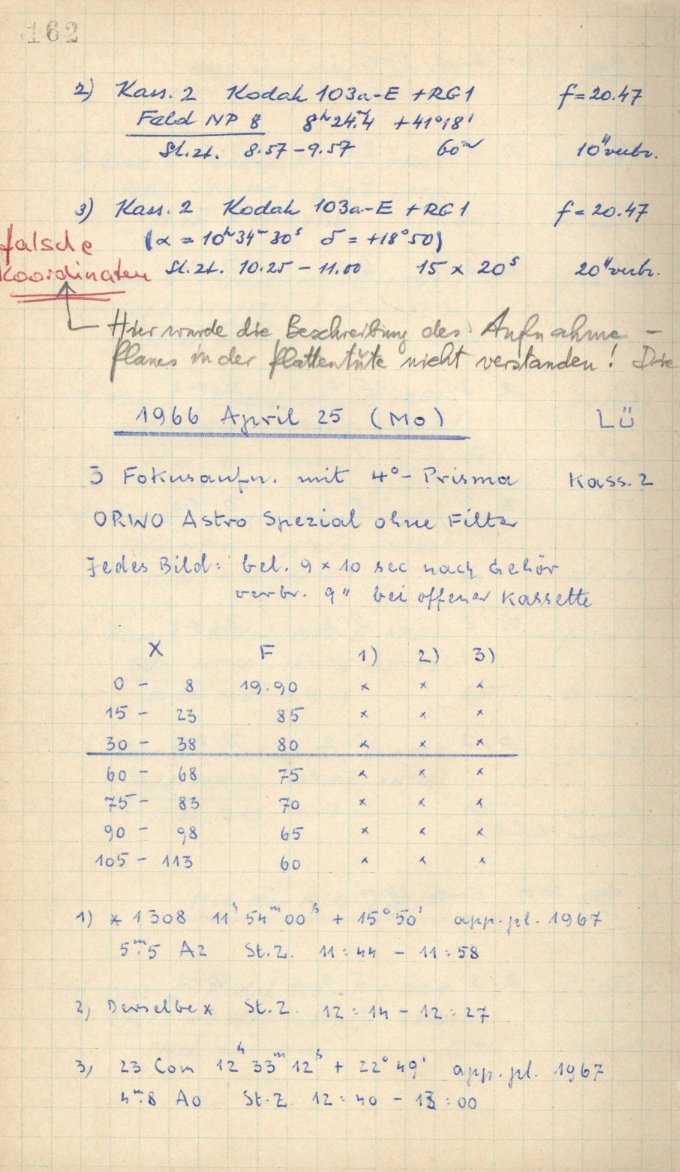 162
2) Kass. 2 Kodak 103a-E + RG1 f = 20.47
Feld NP 8 8ʰ24ᵐ.4 +41°18'
St.zt. 8.57 - 9.57 60ᵐ 10" verbr.
3) Kass. 2 Kodak 103a-E + RG1 f = 20.47
falsche (α = 10ʰ 34ᵐ 30ˢ δ = +18° 50)
Koordinaten St.zt. 10.25 - 11.00 15 x 20ˢ 20" verbr.
Hier wurde die Beschreibung des Aufnahme -
planes in der Plattentüte nicht verstanden! Die
1966 April 25 (Mo) Lü
3 Fokusaufn. mit 4°- Prisma Kass. 2
ORWO Astro Spezial ohne Filter
Jedes Bild: bel. 9 x 10 sec nach Gehör
verbr. 9" bei offener Kassette
X F 1) 2) 3)
0 - 8 19.90 x x x
15 - 23 85 x x x
30 - 38 80 x x x
60 - 68 75 x x x
75 - 83 70 x x x
90 - 98 65 x x x
105 - 113 60 x x x
1) * 1308 11ʰ 54ᵐ 00ˢ + 15° 50' app. pl. 1967
5ᵐ.5 A2 St.Z. 11:44 - 11:58
2) Derselbe * St.Z. 12:14 - 12:27
3) 23 Com 12ʰ 33ᵐ 12ˢ + 22° 49' app. pl. 1967
4ᵐ.8 A0 St.Z. 12:40 - 13:00